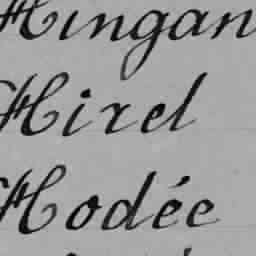 Hingan
Hirel
Hodée